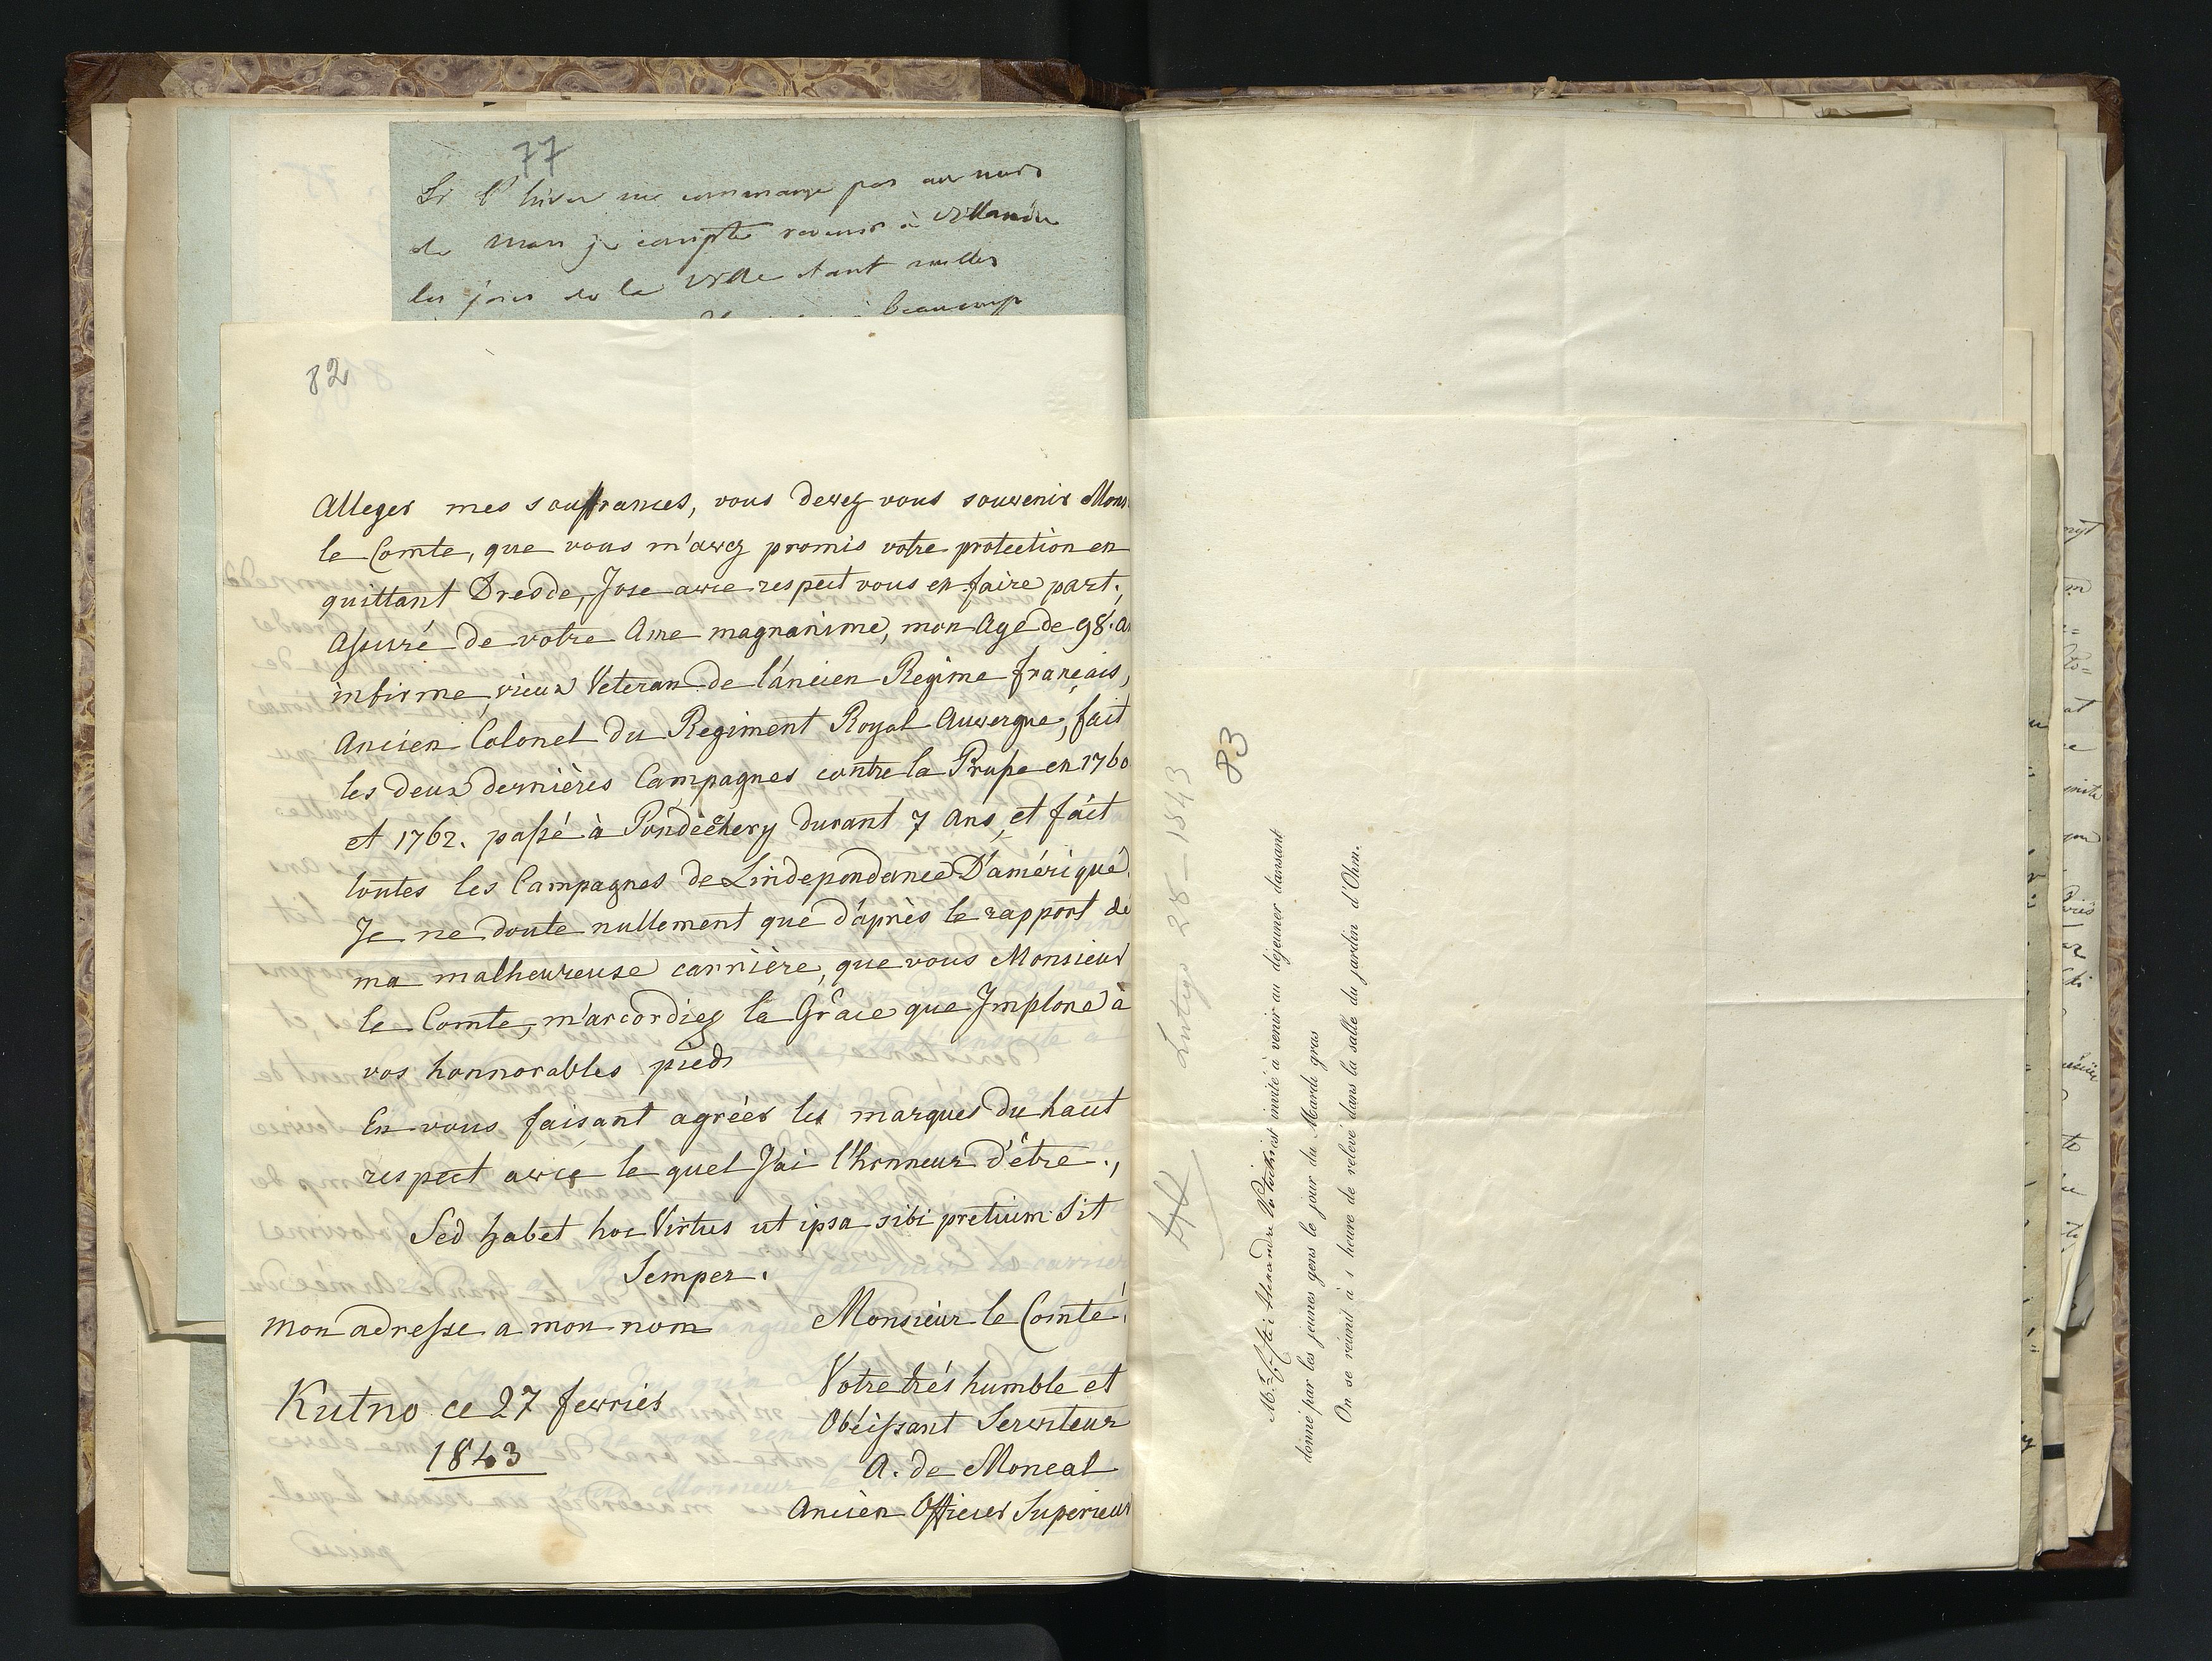 77
Si l'hiver ne commence pas au mois
de Mars je compte revenir à
les jours de la Ville étant
beaucoup
82
Alleger mes souffrances, vous devez vous souvenir Mons
le Comte, que vous m'avez promis votre protection en
quittant Dresde, J'ose avec respect vous en faire part,
Assuré de votre Ame magnanime, mon Age de 98. a
infirme, vieux Veteran de l'ancien Regime français,
Ancien Colonel du Regiment Royal Auvergne, fait
les deux dernières Campagnes contre la Prusse en 1760
et 1762. passé à Pondèchery durant 7 Ans, et fait
toutes les Campagnes de Lindependance D'amérique.
Je ne doute nullement que d'après le rapport de
ma malheureuse carrière, que vous Monsieur
le Comte, m'accordiez la Grâce que Jmplore à
vos honnorables pieds
En vous faisant agréer les marques du haut
respect avec le quel J'ai l'honneur d'être.,
Sed habet hoc Virtus ut ipsa sibi pretium Sit
Semper.
mon adresse a mon nom
Monsieur le Comte.
Votre très humble et
Obéissant Serviteur
A. de Moncal
Ancien Officier Superieur
Kutno ce 27 fevrier
1843
Lutego 28–1843
83
est invité à venir au déjeuner dansant
donné par les jeunes gens le jour du Mardi gras
On se réunit à 1 heure de relevé dans la salle du jardin d'Ohm.